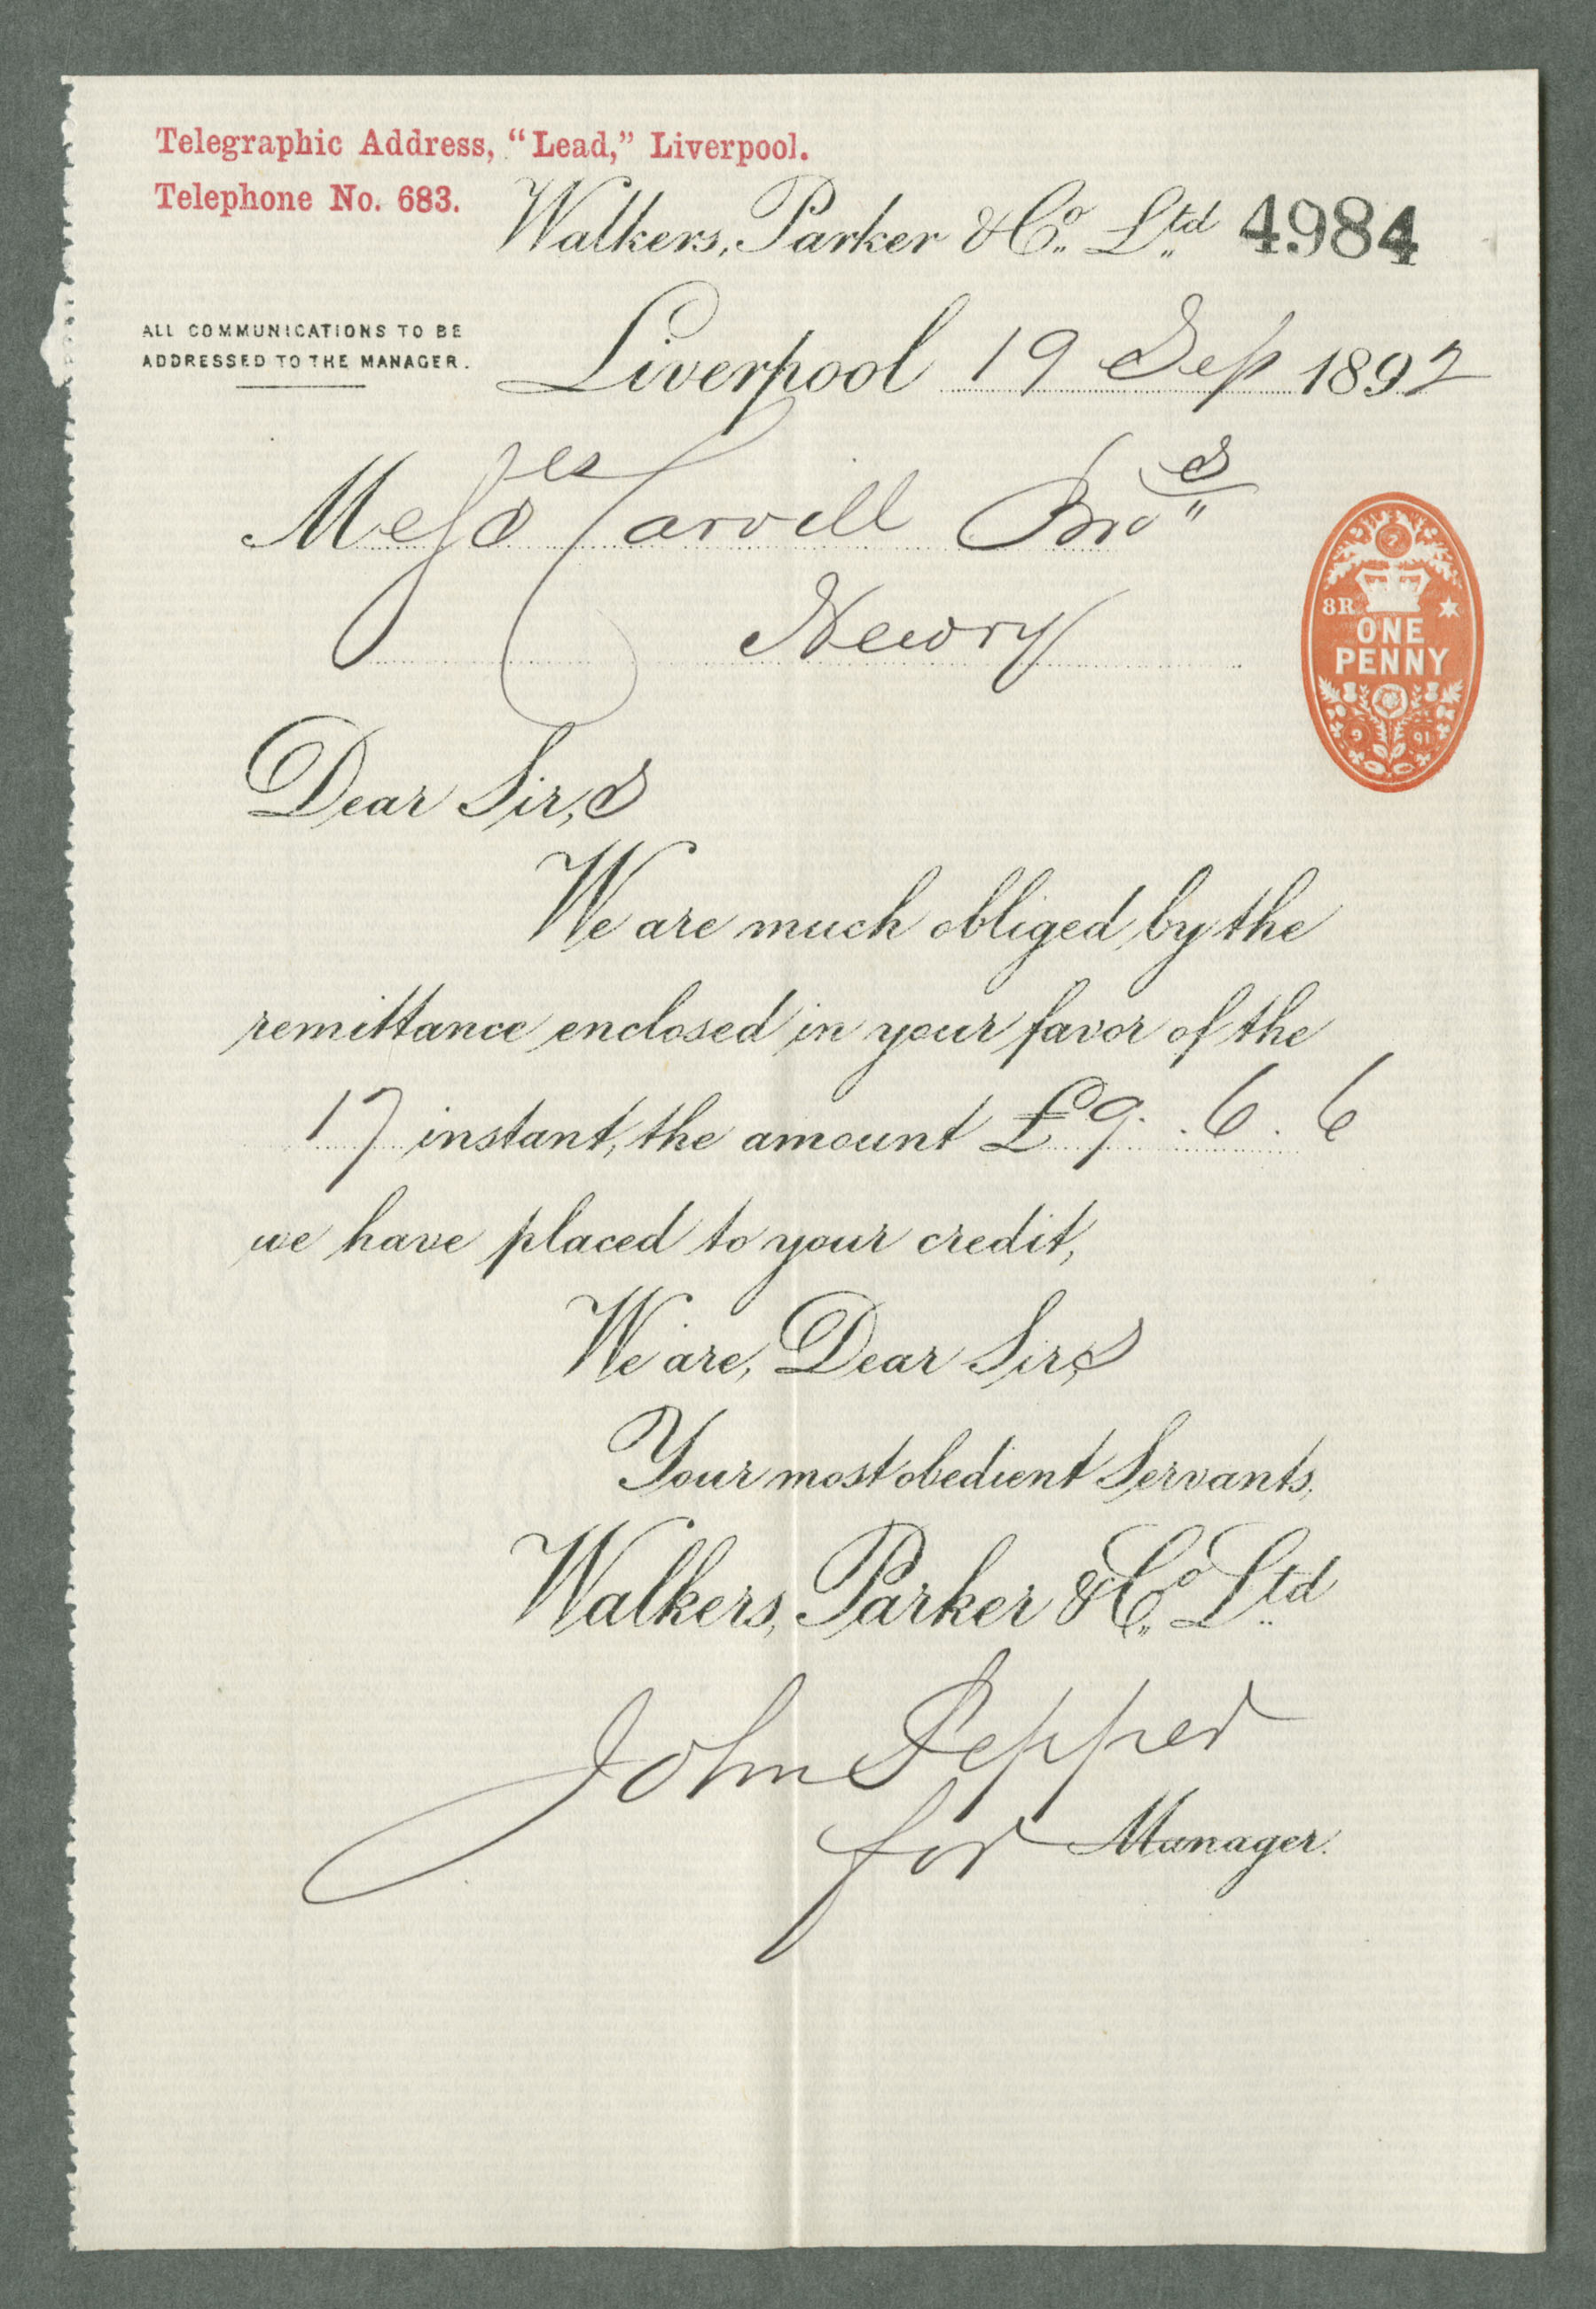 Telegraphic Address, "Lead," Liverpool.
Telephone No. 683.
Walkers, Parker & Co. Ltd 4984
ALL COMMUNICATIONS TO BE
ADDRESSED TO THE MANAGER.
Liverpool 19 Sep 1892
Carvill Bros
Newry
8R
ONE
PENNY
9 91
Dear Sir,s
We are much obliged by the
remittance enclosed in your favor of the
17 instant, the amount £9.6.6
we have placed to your credit,
We are, Dear Sir,s
Your most obedient Servants,
Walkers, Parker & Co. Ltd
John Pepper
for Manager.